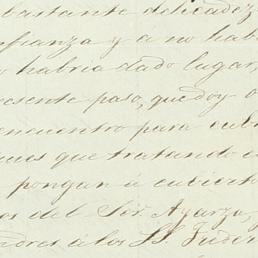 bastante delicadez
nfianza y a no hab
habria dado lugar,
resente paso, que doy
encuentro para cub
que tratando
pongan á cubierto
os del Sór. Azarza,
ndres á los